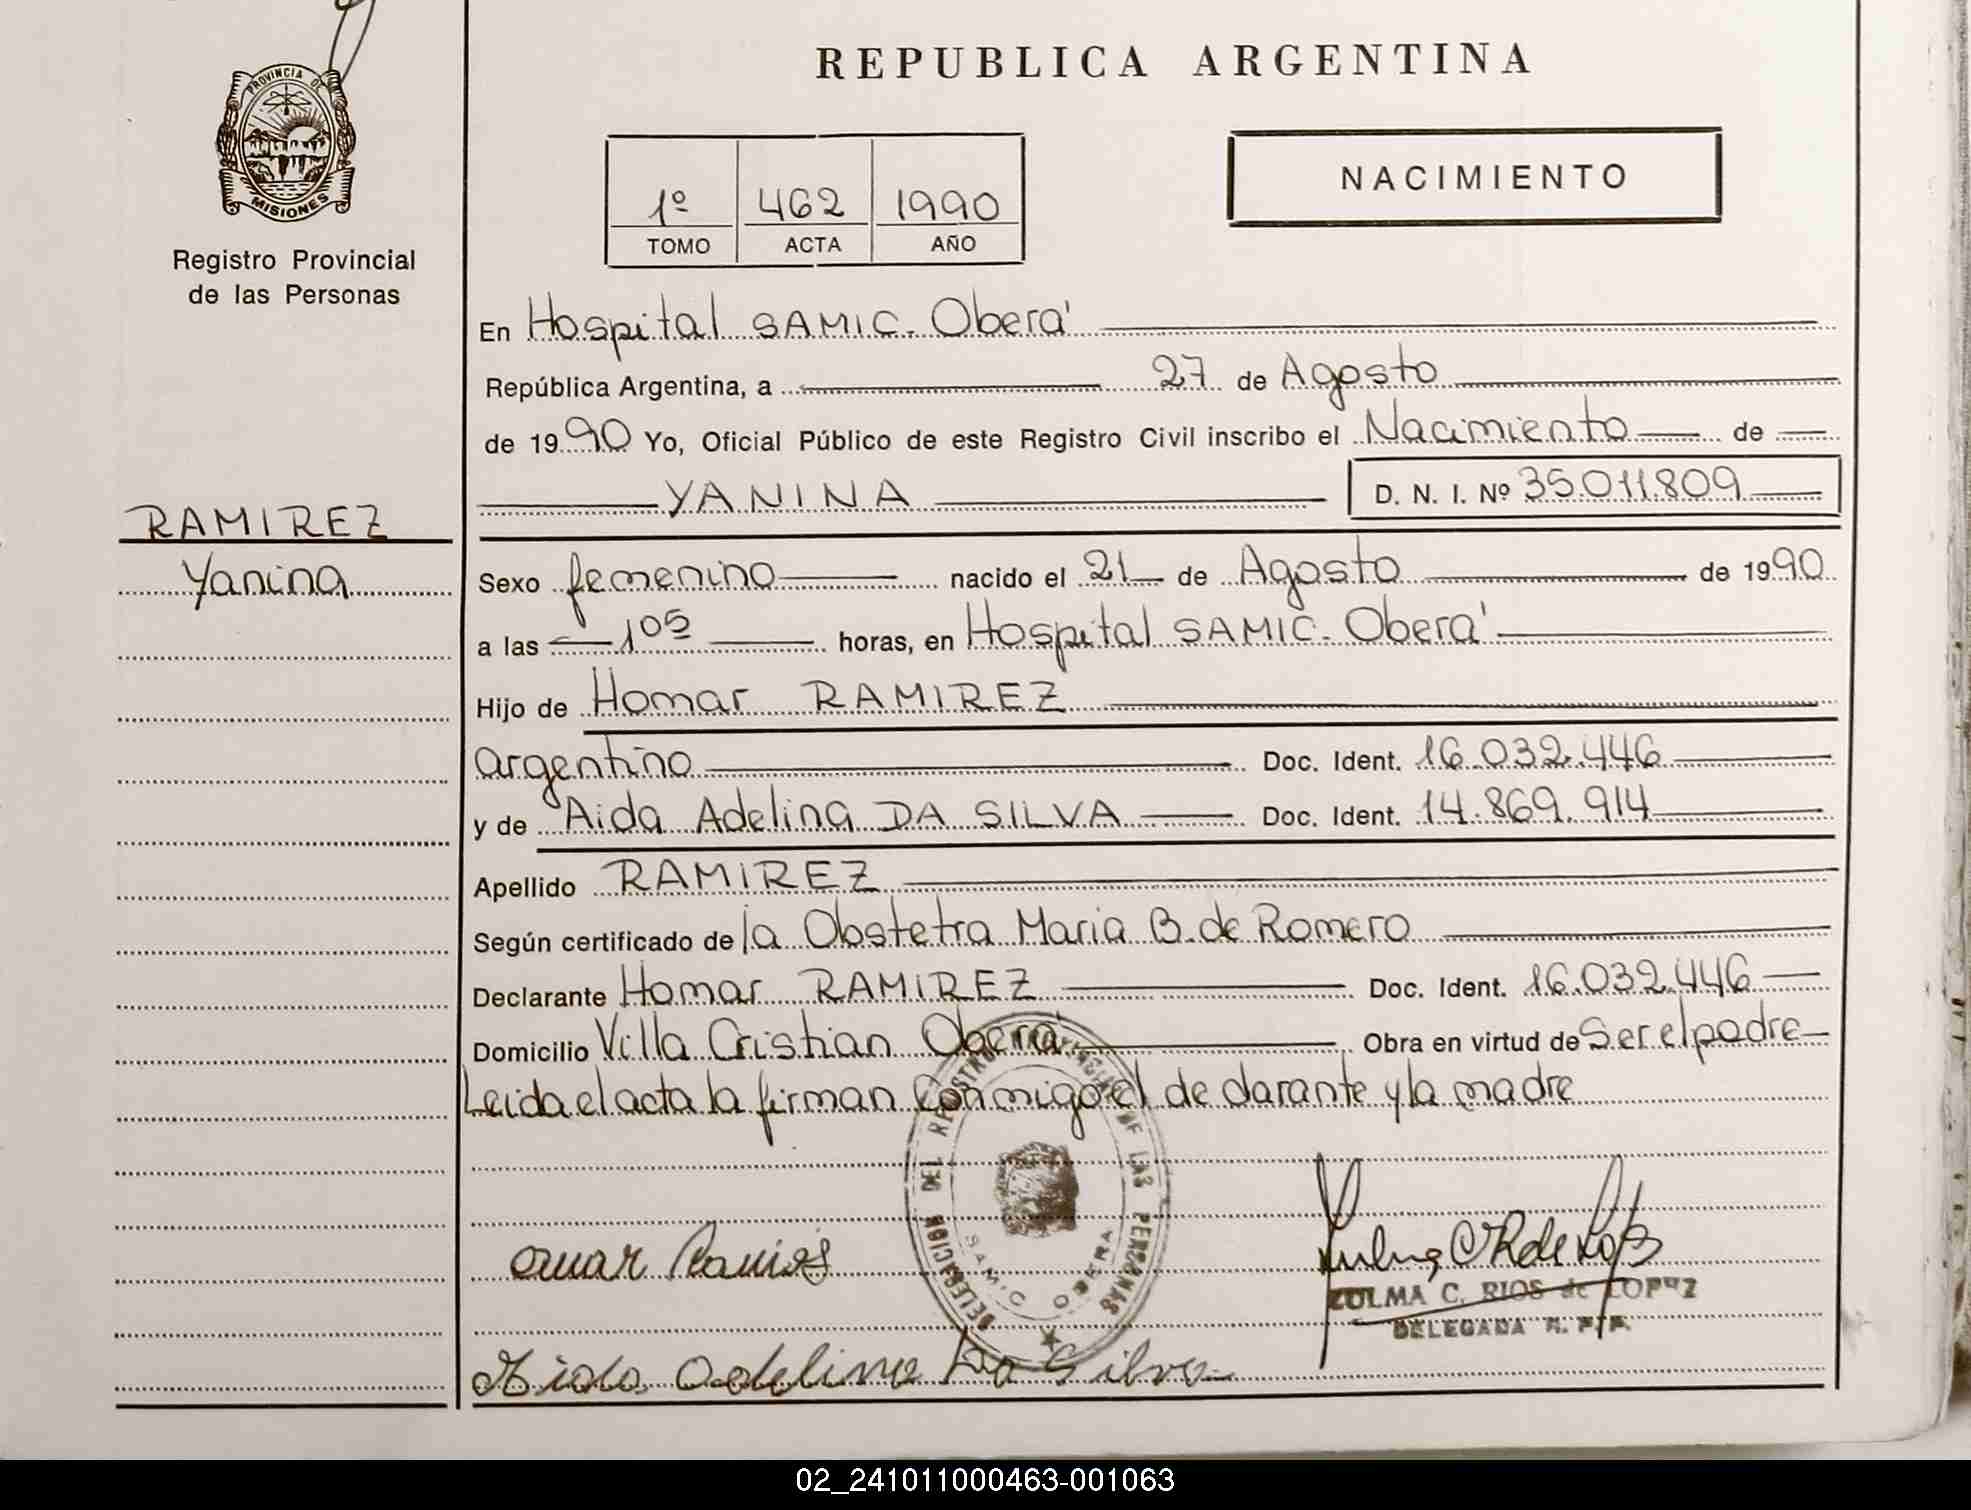 PROVINCIA DE
MISIONES
Registro Provincial
de las Personas
RAMIREZ
Yanina
REPUBLICA ARGENTINA
1º 462 1990
TOMO ACTA AÑO
NACIMIENTO
En Hospital SAMIC. Oberá
República Argentina, a 27 de Agosto
de 1990 Yo, Oficial Público de este Registro Civil inscribo el Nacimiento de
YANINA D. N. I. Nº 35.011.809
Sexo femenino nacido el 21 de Agosto de 1990
a las 1 05 horas, en Hospital SAMIC. Oberá
Hijo de Homar RAMIREZ
argentino Doc. Ident. 16.032.446
y de Aida Adelina DA SILVA Doc. Ident. 14.869.914
Apellido RAMIREZ
Según certificado de la Obstetra Maria B. de Romero
Declarante Homar RAMIREZ Doc. Ident. 16.032.446
Domicilio Villa Cristian Oberá Obra en virtud de Ser el padre
Leida el acta la firman Conmigo el de clarante y la madre
DELEGACION DEL REGISTRO PROVINCIAL DE LAS PERSONAS
SAMIC OBERA
omar Ramires
ZULMA C. RIOS de LOPEZ
DELEGADA R. P. P.
Aida Adelina Da Silva
02_241011000463-001063